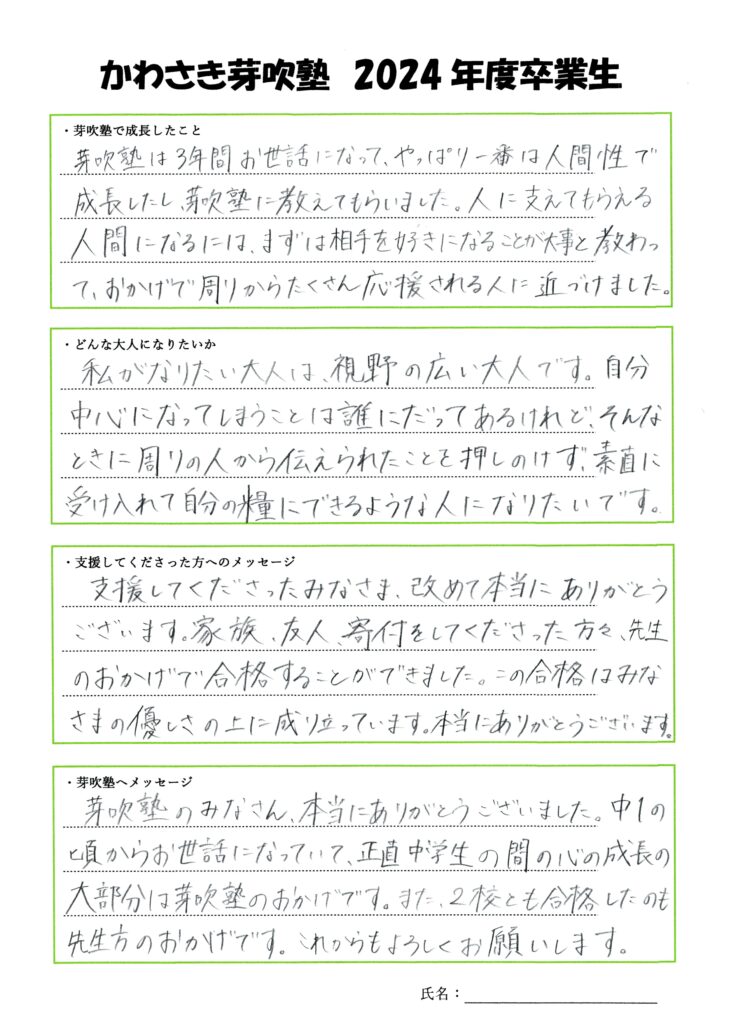 かわさき芽吹塾 2024年度卒業生
・芽吹塾で成長したこと
芽吹塾は3年間お世話になって、やっぱり一番は人間性で
成長したし、芽吹塾に教えてもらいました。人に支えてもらえる
人間になるには、まずは相手を好きになることが大事と教わっ
て、おかげで周りからたくさん応援される人に近づけました。
・どんな大人になりたいか
私がなりたい大人は、視野の広い大人です。自分
中心になってしまうことは誰にだってあるけれど、そんな
ときに周りの人から伝えられたことを押しのけず、素直に
受け入れて自分の糧にできるような人になりたいです。
・支援してくださった方へのメッセージ
支援してくださったみなさま、改めて本当にありがとう
ございます。家族、友人、寄付をしてくださった方々、先生
のおかげで合格することができました。この合格はみな
さまの優しさの上に成り立っています。本当にありがとうございます。
・芽吹塾へメッセージ
芽吹塾のみなさん、本当にありがとうございました。中1の
頃からお世話になっていて、正直中学生の間の心の成長の
大部分は芽吹塾のおかげです。また、2校とも合格したのも
先生方のおかげです。これからもよろしくお願いします。
氏名：